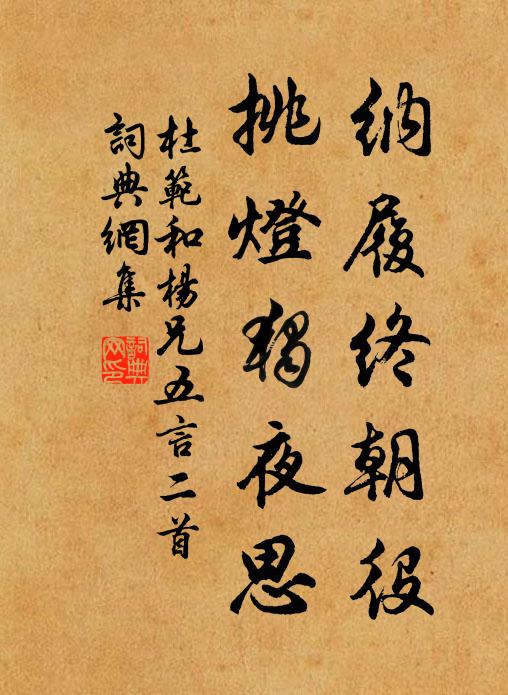 納履終朝役
挑燈獨夜思
杜範和楊兄五言二首
詞典網集
詞典网印